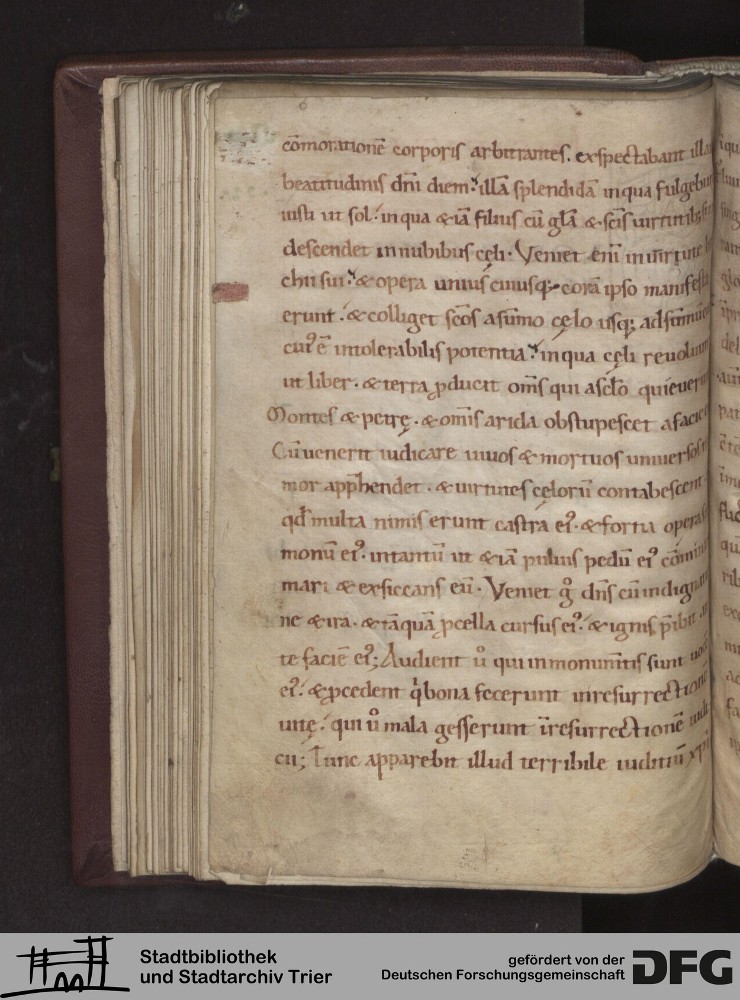 cōmorationē corporis arbitrantes. exspectabant illā
beatitudinis dn̄i diem. illā splendidā in qua fulgebun
iusti ut sol. in qua & iā filius cū gl̄a & sc̄is uirtutib;
descendet in nubibus cęli. Veniet eni in uirtute
chii sui. & opera unius cuiusq; corā ipso manifesta
erunt. & colliget sc̄os a sūmo cęlo usq; ad sūmū
cui᾽ ē intolerabilis potentia. in qua cęli reuoluun
ut liber. & terra ꝓducit om̄s qui a sc̄lo quieuerun
Montes & petrę. & om̄is arida obstupescet a facie
Cū uenerit iudicare uiuos & mortuos uniuersos
mor appͪendet. & uirtutes cęlorū contabescent.
qđ multa nimis erunt castra ei᾽. & fortia opera
monū ei᾽. intantū ut & iā puluis pedū ei᾽ cōmin
mari & exsiccans eū. Veniet g͛ dn̄s cū indigna
ne & ira. & tāquā ꝓcella cursus ei᾽. & ignis p̄ibit an
te faciē ei᾽; Audient u͛ qui in monum̄tis sunt uocē
ei᾽. & ꝓcedent q bona fecerunt in resurrectionē
uitę. qui u͛ mala gesserunt ī resurrectionē iudi
cii; Tunc apparebit illud terribile iuditiū xp̄i
Stadtbibliothek
und Stadtarchiv Trier
gefördert von der
Deutschen Forschungsgemeinschaft
DFG